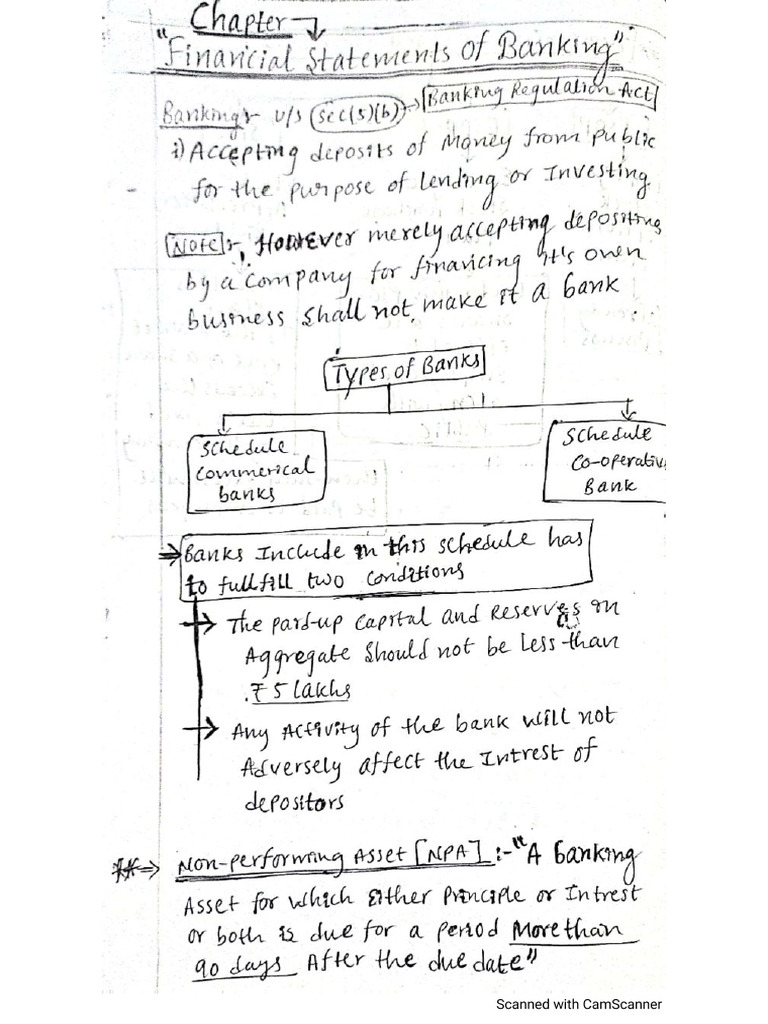 Chapter →
"Financial Statements of Banking"
Banking:- u/s (sec(5)(b)) → Banking Regulation Act
i) Accepting deposits of Money from public
for the purpose of lending or Investing
Note:- However merely accepting depositing
by a company for financing it's own
business shall not make it a bank
Types of Banks
Schedule
commerical
banks
Schedule
Co-operativ
Bank
⇒ Banks Include in this schedule has
to fullfill two conditions
→ The paid-up capital and Reserves in
Aggregate should not be less than
₹5 lakhs
→ Any Activity of the bank will not
Adversely affect the Intrest of
depositors
**⇒ Non-performing Asset [NPA] :- "A banking
Asset for which Either Principle or Intrest
or both is due for a period More than
90 days After the due date"
Scanned with CamScanner